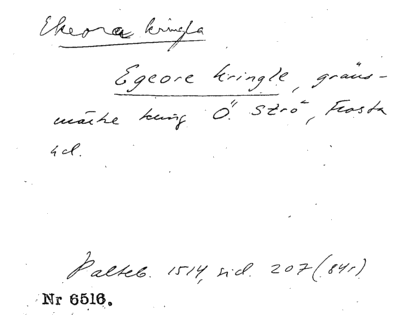 Ekeora kringla
Egeore kringle, gräns-
märke kring Ö. Strö, Frosta
hd.
Palteb. 1514, sid. 207 (84r)
Nr 6516.